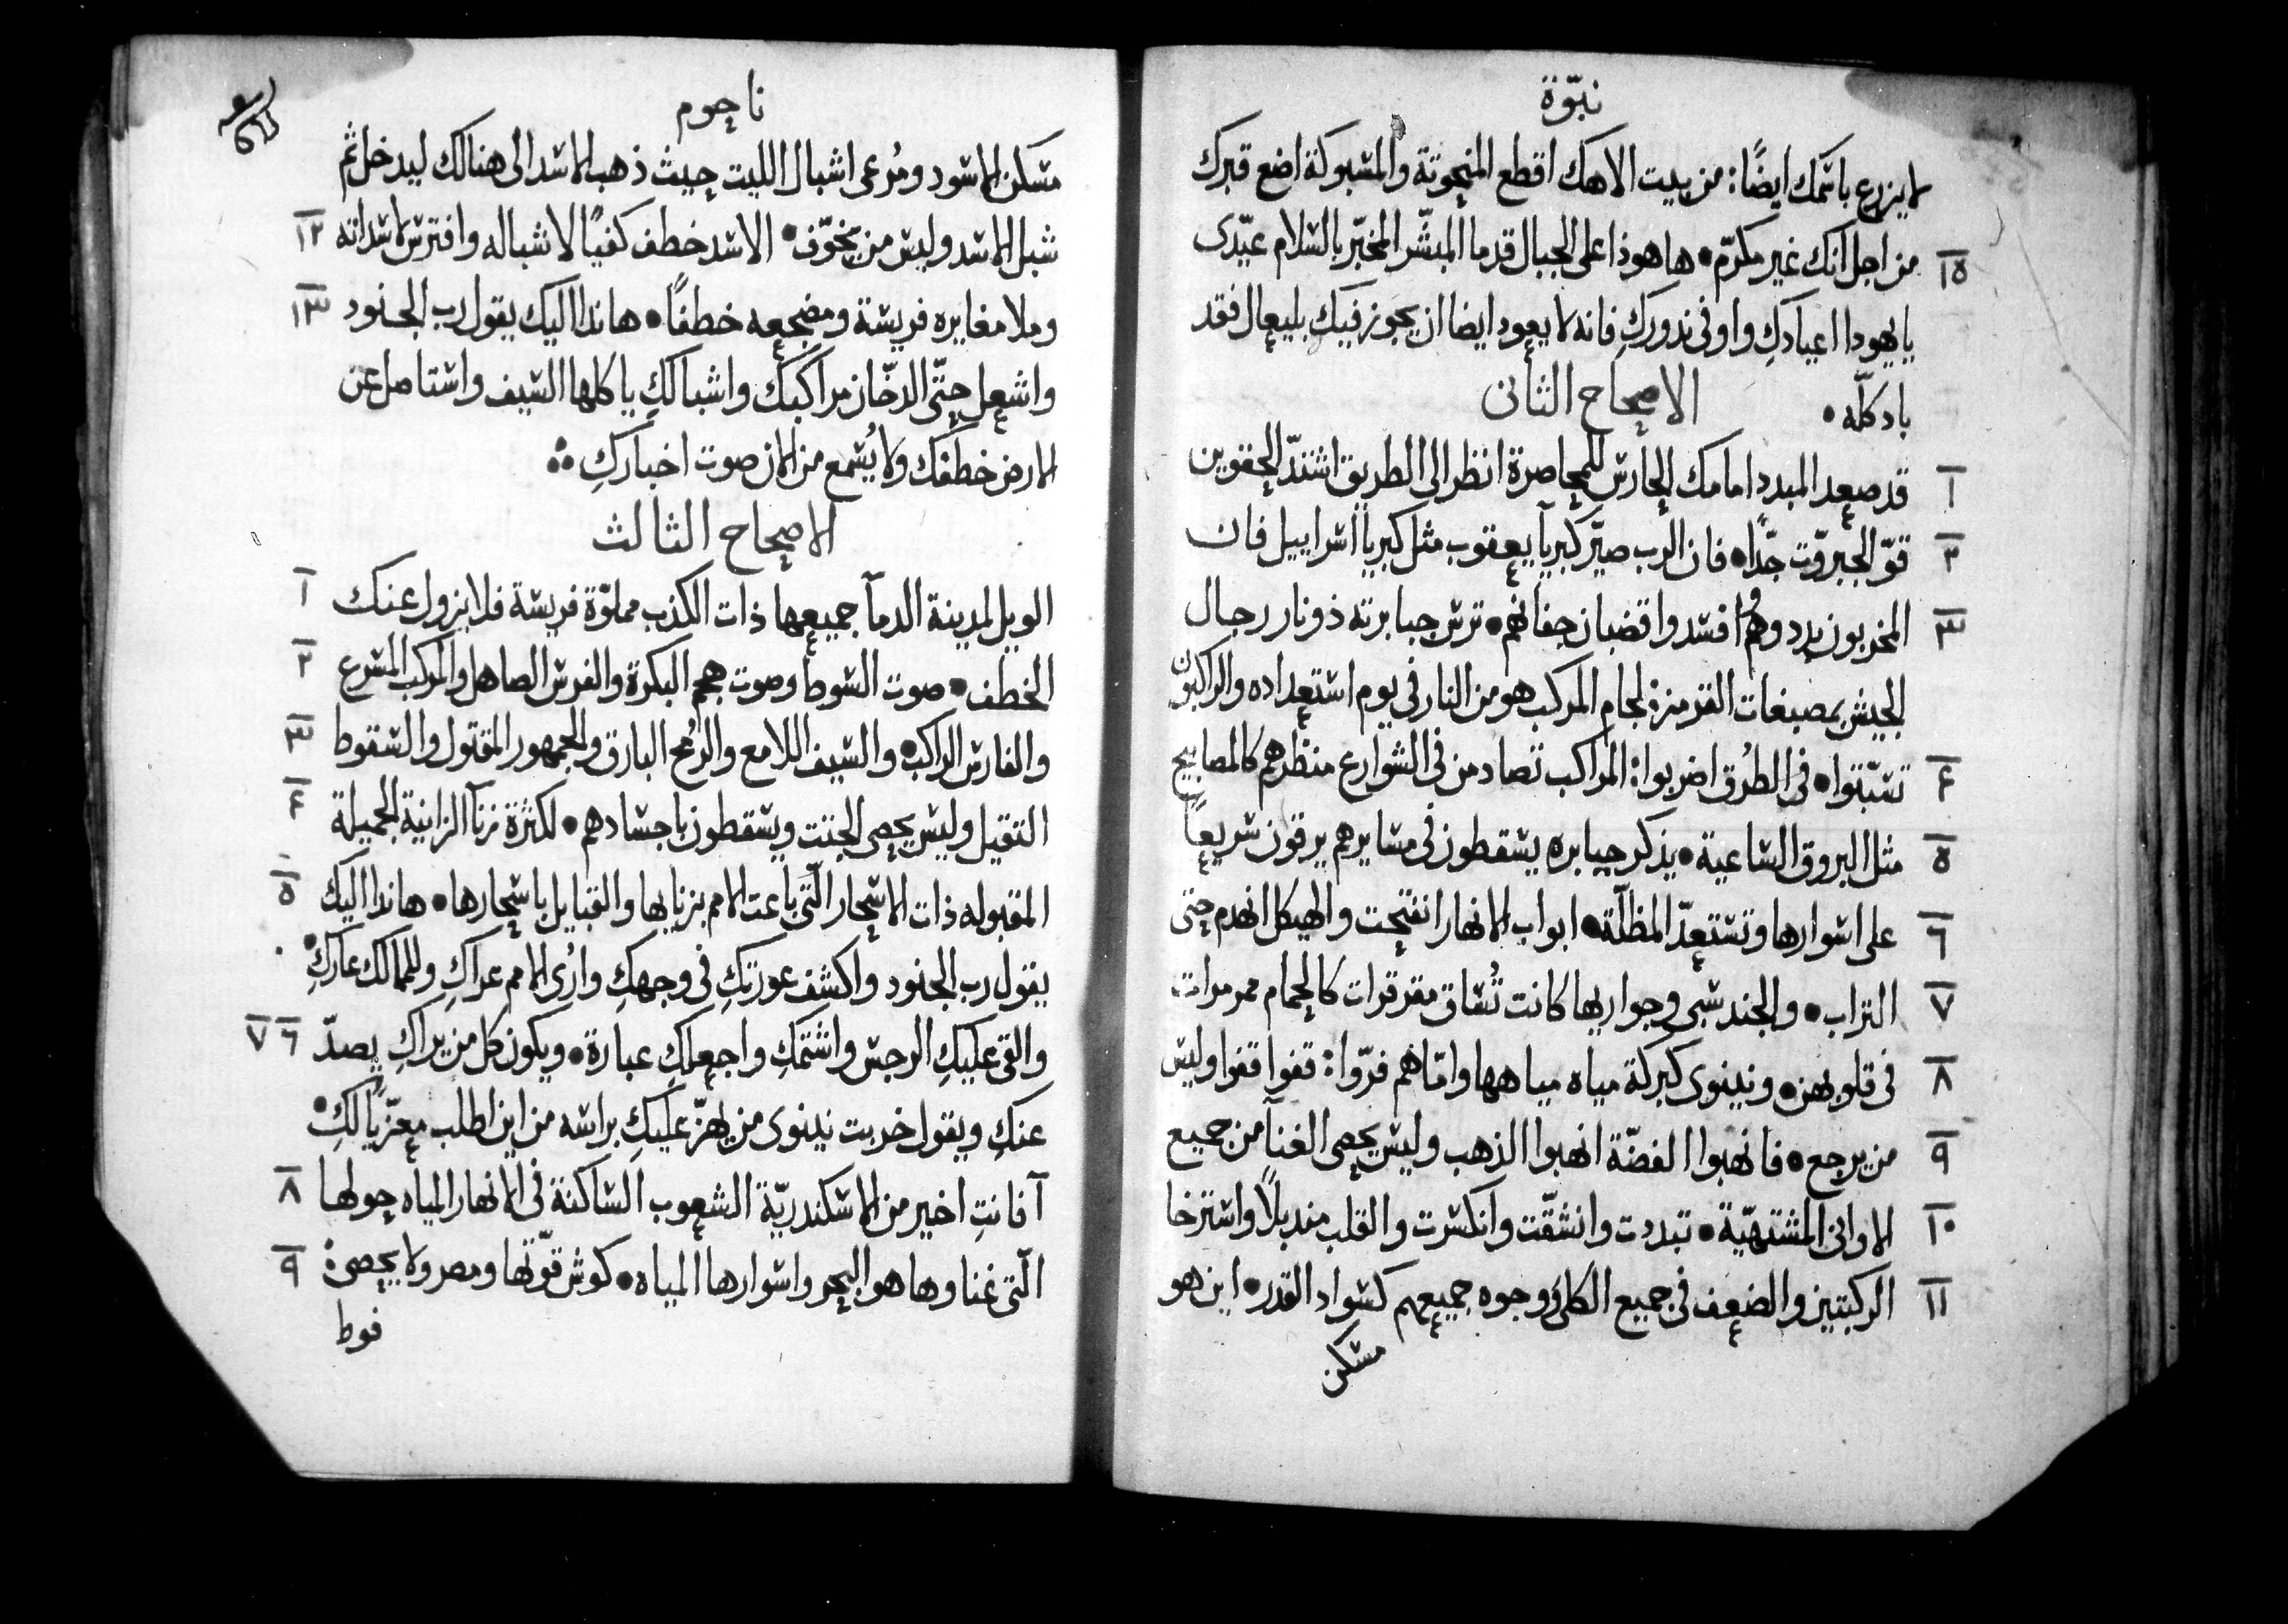 نبّوة
لا يزرع باسمك ايضًا: من بيت الاهك اقطع المنحوتة والمسبوكة اضع قبرك
١٥ من اجل انك غير مكرّم • ها هوذا على الجبال قدما المبشّر المخبّر بالسلام عيّدى
يا يهودا اعيادكِ واوفى ندوركِ فانه لا يعود ايضا ان يجوز فيكِ بليعال فقد
باد كلّه •
الاصحاح الثانى
١ قد صعد المبدد امامك الحارس للمحاصرة انظر الى الطريق اشتدّ الحقوين
٢ قوّ الجبروّت جدًّا • فان الرب صيّر كبريآ يعقوب مثل كبريا اسراييل فان
٣ المخربون بددوهم وافسدوا قضبان جفانهم • ترس جبابرته ذو نار رجال
الجيش بمصبغات القزمزة لجام المركب هو من النار فى يوم استعداده والراكبون
٤ تسبّتوا • فى الطرُق اضربوا: المراكب تصادمن فى الشوارع منظرهم كالمصابيح
٥ مثل البروق الساعية • يذكر جبابره يسقطون فى مسايرهم يرقون سريعًا
٦ على اسوارها وتستعدّ المظلّة • ابواب الانهار انفتحت والهيكل انهدم حتى
٧ التراب • والجند سبى وجواريها كانت تُساق مقرقرات كالحمام ممرمرات
٨ فى قلوبهن • ونينوى كبركة مياه مياهها وامّا هم فرّوا: قفوا قفوا وليس
٩ من يرجع • فانهبوا الفضّة انهبوا الذهب وليس يحصى الغنآ من جميع
١٠ الاوانى المشتهيّة • تبددت وانشقّت وانكسرت والقلب مندبلًا واسترخا
١١ الركبتين والضعف فى جميع الكلى ووجوه جميعهم كسواد القدر • اين هو
مسكن
ناحوم
مسكن الاسود ومُرعى اشبال الليت حيث ذهب الاسد الى هنالك ليدخل ثم
١٢ شبل الاسد وليس من يخوّف • الاسد خطف كفيًا لاشباله وافترس لاسداته
١٣ وملا مغايره فريسة ومضجعه خطفًا • هانذا اليك يقول رب الجنود
واشعل حتّى الدخان مراكبك واشبالكِ ياكلها السيف واستاصل عن
الارض خطفك ولا يُسمع من الان صوت اخباركِ
الاصحاح الثالث
١ الويل لمدينة الدمآ جميعها ذات الكذب مملوّة فريسة فلا يزول عنك
٢ الخطف • صوت السوط وصوت هجم البكرة والفرس الصاهل والمركب المسرع
٣ والفارس الراكب • والسيف اللامع والرُمح البارق والجمهور المقتول والسقوط
٤ التقيل وليس يحصى الجتت ويسقطون باجسادهم • لكثرة زنآ الزانية الجميلة
٥ المقبوله ذات الاسحار الّتى باعت الامم بزنايها والقبايل باسحارها • هانذا اليك
يقول رب الجنود واكشف عورتكِ فى وجهكِ وارُى الامم عراكِ وللممالك عاركِ •
٦ ٧ والقى عليكِ الرجس واشتمكِ واجعلكِ عبارة • ويكون كل من يراكِ يصدّ
عنكِ ويقول خربت نينوى من يهزّ عليكِ براسه من اين اطلب معزّيًا لكِ •
٨ آفانتِ اخير من الاسكندريّة الشعوب الساكنة فى الانهار المياه حولها
٩ الّتى غناوها هو البحر واسوارها المياه • كوش قوّتها ومصر ولا يحصى:
فوط